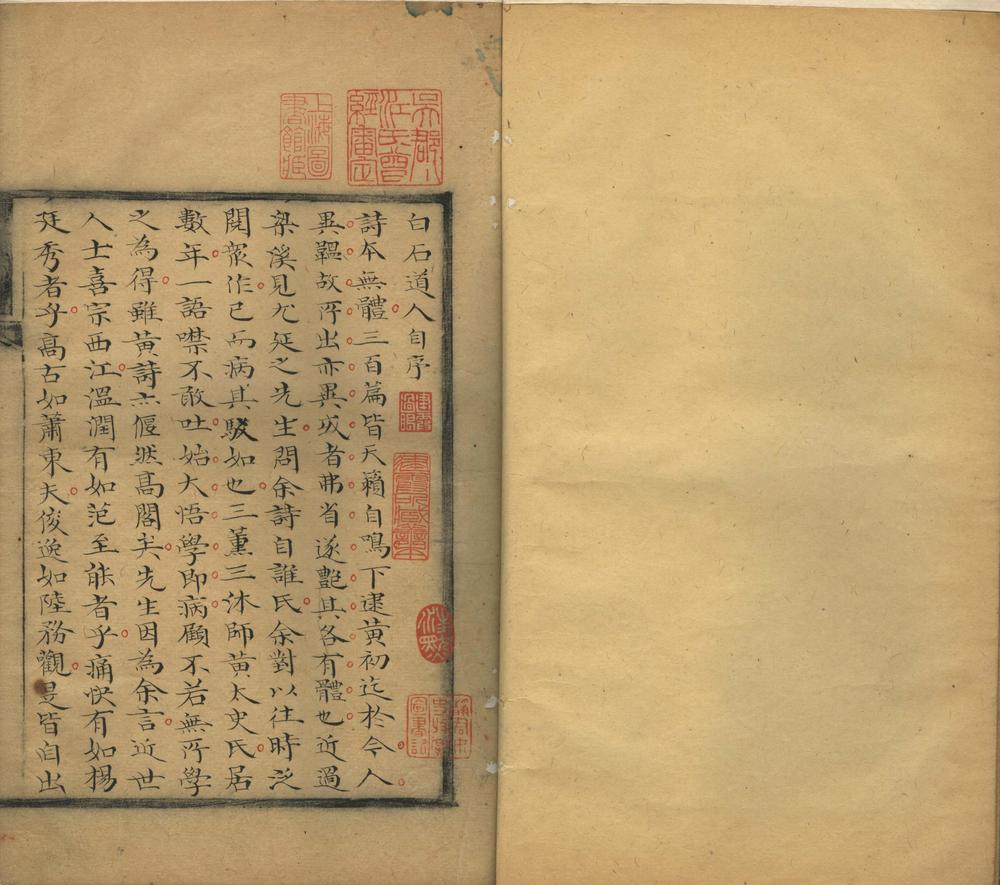 白石道人自序
詩本無體三百篇皆天籟自鳴下逮黄初迄於今人
異韞故所出亦異或者弗省遂艷其各有體也近過
梁溪見尤延之先生問余詩自誰氏余對以往時泛
閱衆作已而病其駁如也三薰三沐師黄太史氏居
數年一語噤不敢吐始大悟學即病顧不若無所學
之為得雖黄詩亦偃然高閣矣先生因為余言近世
人士喜宗西江温潤有如范至能者乎痛快有如楊
廷秀者乎高古如蕭東夫俊逸如陸務觀是皆自出
吳郡汪氏曾經審定
上海圖書館藏